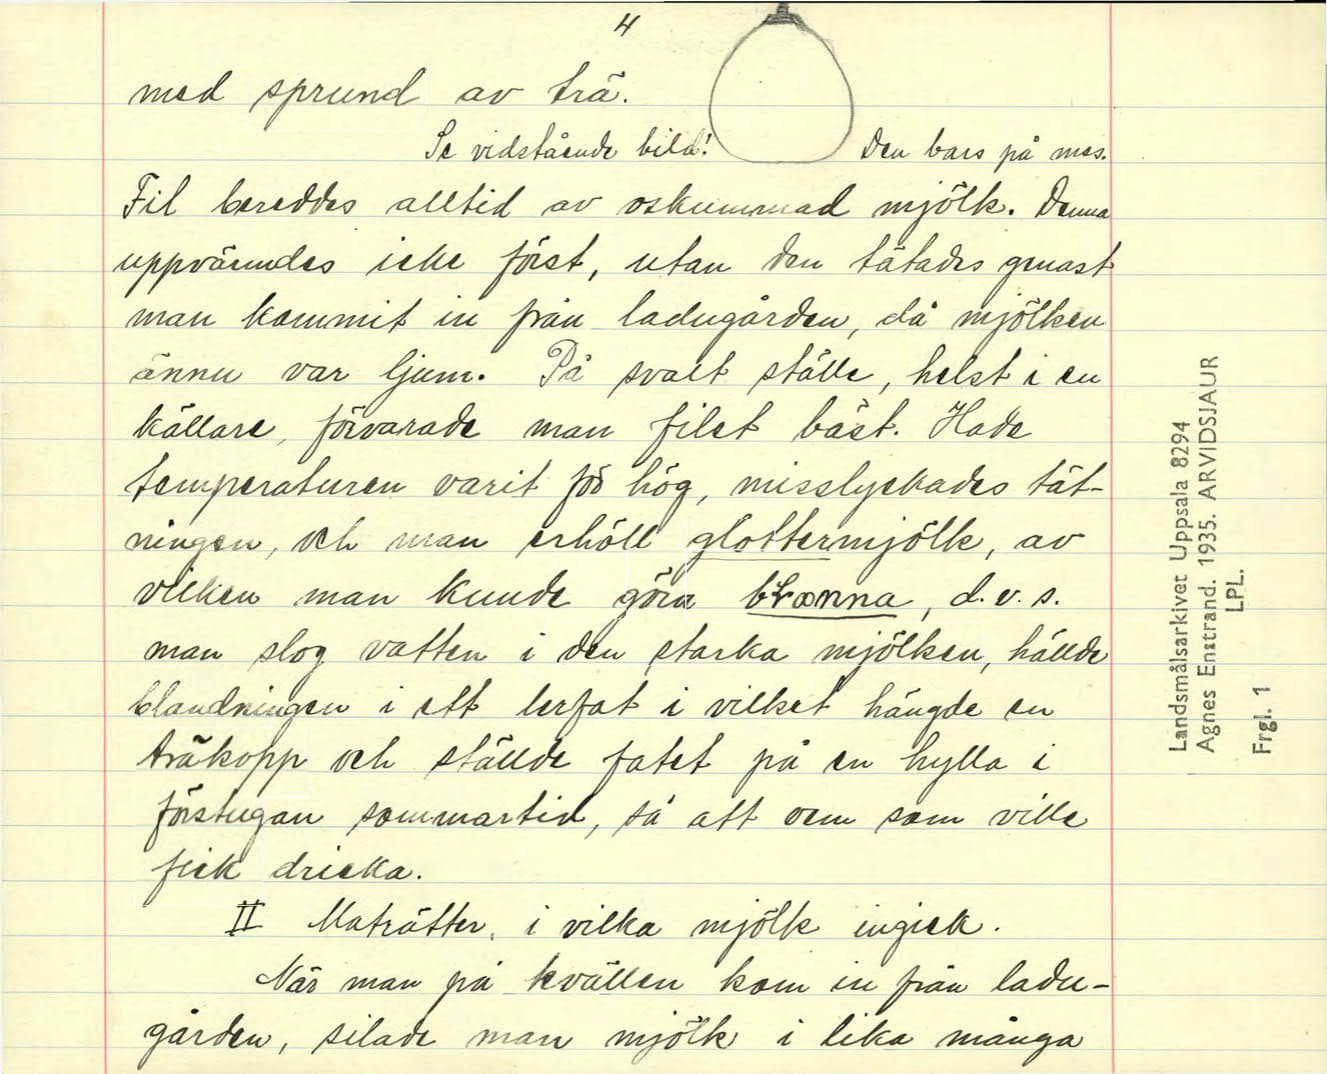 4
med sprund av trä.
Se vidstående bild! Den bars på mes.
Fil bereddes alltid av oskummad mjölk. Denna
uppvärmdes icke först, utan den tätades genast
man kommit in från ladugården, då mjölken
ännu var ljum. På svalt ställe, helst i en
källare, förvarade man filet bäst. Hade
temperaturen varit för hög, misslyckades tät-
ningen, och man erhöll glottermjölk, av
vilken man kunde göra blænna, d.v.s.
man slog vatten i den starka mjölken, hällde
blandningen i ett lerfat i vilket hängde en
träkopp och ställde fatet på en hylla i
förstugan sommartid, så att vem som ville
fick dricka.
II Maträtter, i vilka mjölk ingick.
När man på kvällen kom in från ladu-
gården, silade man mjölk i lika många
Landsmålsarkivet Uppsala 8294
Agnes Enstrand. 1935. ARVIDSJAUR
LPL.
Frgl. 1